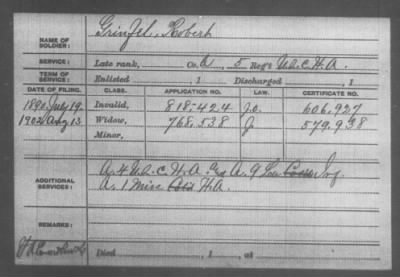 NAME OF SOLDIER: Grinfel, Robert
SERVICE: Late rank, Co. A, 5 Reg't U.S.C.H.A.
TERM OF SERVICE: Enlisted , 1 Discharged , 1
DATE OF FILING. CLASS. APPLICATION NO. LAW. CERTIFICATE NO.
1890 July 19 Invalid, 818.424 J.O. 606.927
1902 Aug 13 Widow, 768.538 J 579.938
Minor,
A. 4 U.S.C.H.A. A. 9 La Inf
ADDITIONAL SERVICES: A. 1 Miss H.A.
REMARKS:
Died , 1 , at